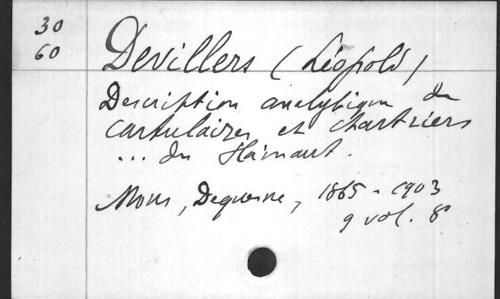 30
60
Devillers (Léopold)
Description analytique de
cartulaires et chartriers
... du Hainaut.
Mons, Dequesne, 1865-1903
9 vol. 8°